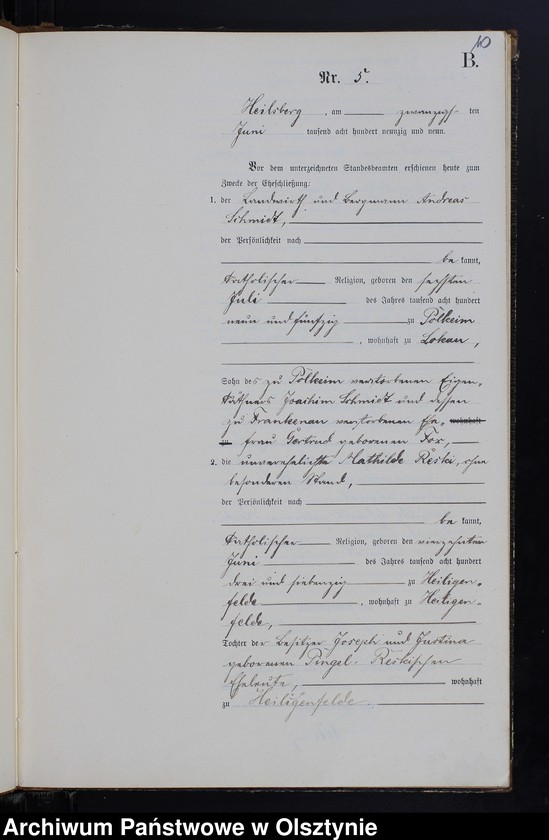 10
B.
Nr. 5.
Heilsberg, am zwanzigsten
Juni tausend acht hundert neunzig und neun.
Vor dem unterzeichneten Standesbeamten erschienen heute zum
Zwecke der Eheschließung:
1. der Landwirth und Bergmann Andreas
Schmidt,
der Persönlichkeit nach
be kannt,
katholischer Religion, geboren den sechsten
Juli des Jahres tausend acht hundert
neun und fünfzig zu Polkeim
, wohnhaft zu Lokau,
Sohn des zu Polkeim verstorbenen Eigen-
käthners Joachim Schmidt und dessen
zu Frankenau verstorbenen Ehe- wohnhaft
zu frau Gertrud geborenen Fox,
2. die unverehelichte Mathilde Reski, ohne
besonderen Stand,
der Persönlichkeit nach
be kannt,
katholischer Religion, geboren den vierzehnten
Juni des Jahres tausend acht hundert
drei und siebenzig zu Heiligen-
felde, wohnhaft zu Heiligen-
felde,
Tochter der Besitzer Joseph und Justina
geborenen Pingel- Reskischen
Eheleute, wohnhaft
zu Heiligenfelde.
Archiwum Państwowe w Olsztynie